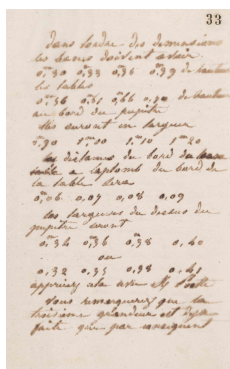 33
dans l'ordre des dimensions
les bancs doivent avoir
0,30 0,33 0,36 0,39 de hauteur
les tables
0,56 0,61 0,66 de hauteur
au bord du pupitre
elles auront en largeur
0,90 1,00 1,10 1,20
la distance du bord du banc
a l'aplomb du bord de
la table sera
0,06 0,07 0,08 0,09
les largeurs du dessus du
pupitre seront
0,34 0,36 0,38 0,40
ou
0,32 0,35 0,38 0,41
cela avec
vous remarquerez que la
troisième grandeur est déjà
faite que par conséquent